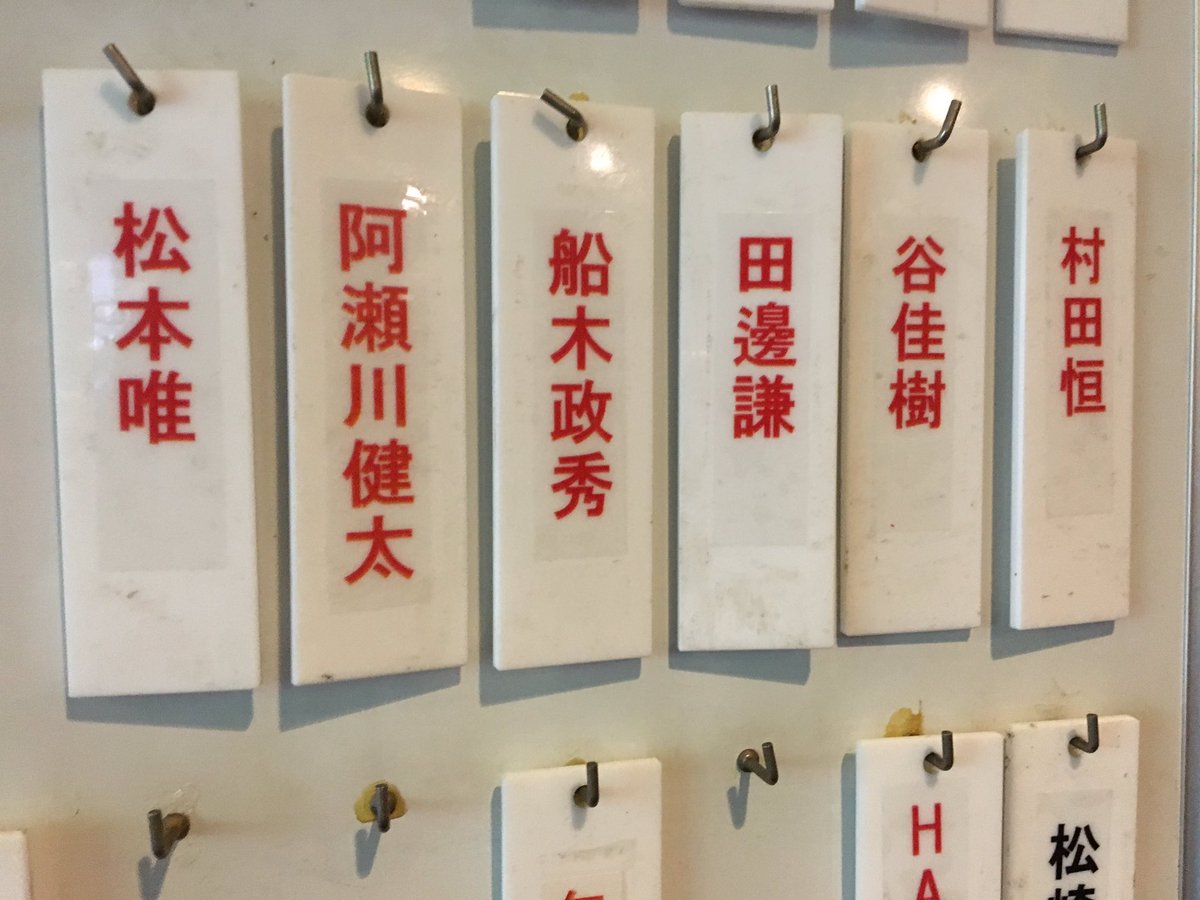 松本唯
阿瀬川健太
船木政秀
田邊謙
谷佳樹
村田恒
HA
松崎